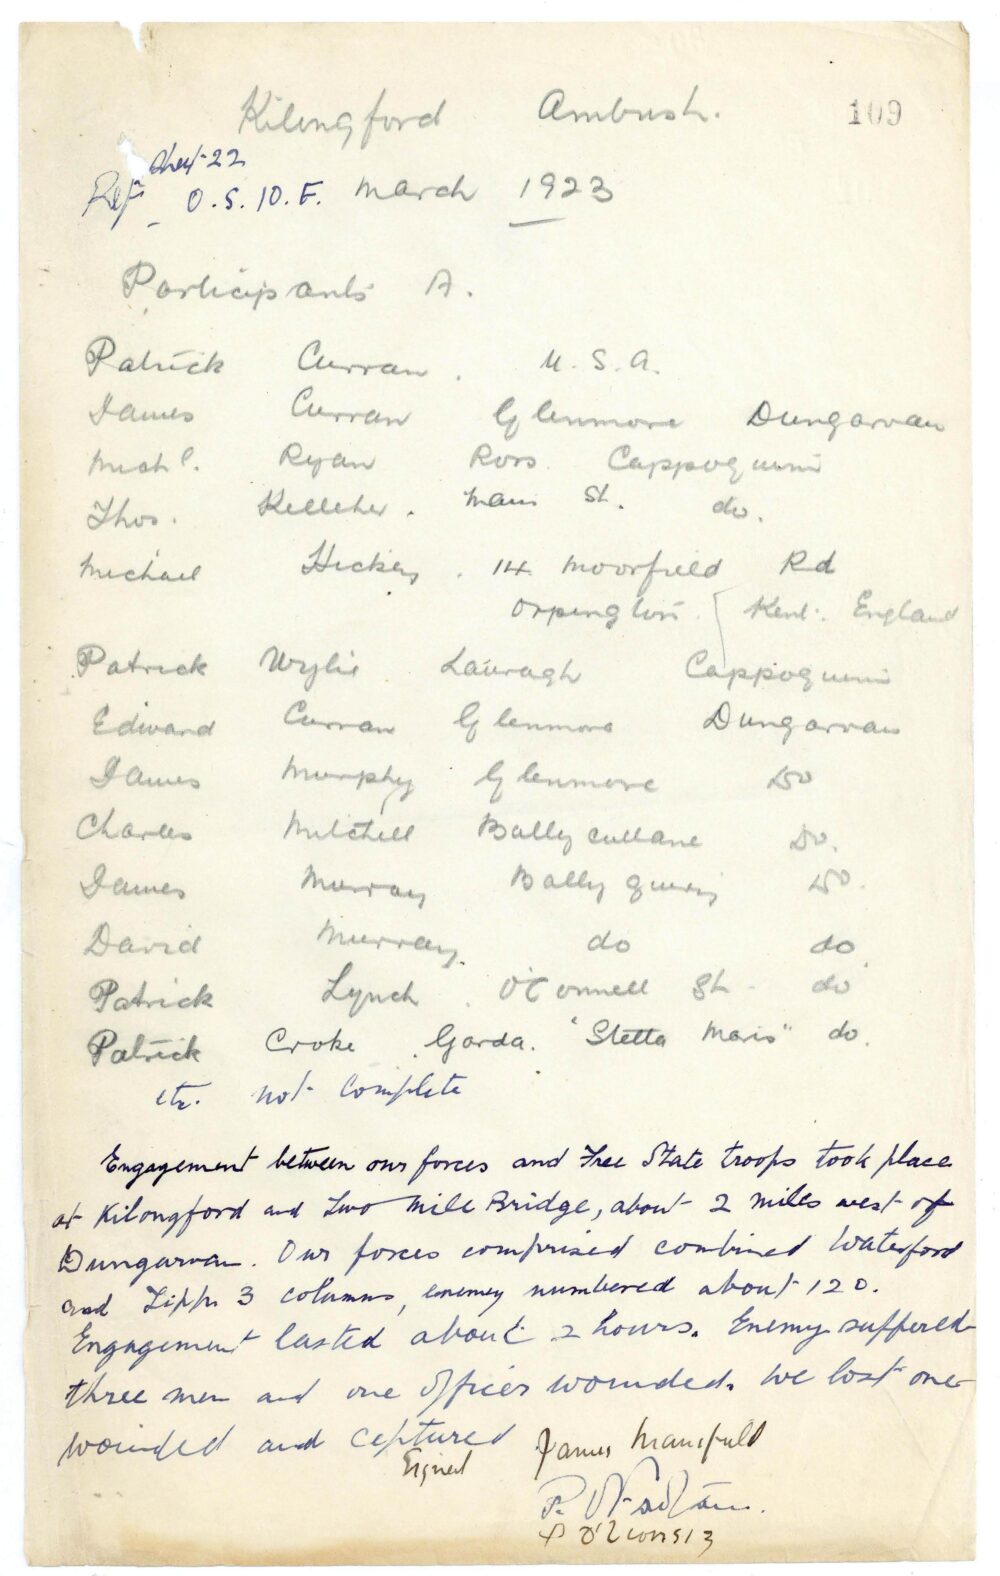 Kilongford Ambush. 109
Sheet 22
Ref: O.S. 10. E. March 1923
Participants A.
Patrick Curran. U.S.A.
James Curran Glenmore Dungarvan
Michl. Ryan Ross. Cappoquin
Thos. Kelleher. Main St. do.
Michael Hickey. 14 Moorfield Rd
Orpington. Kent. England
Patrick Wylie Lauragh Cappoquin
Edward Curran Glenmore Dungarvan
James Murphy Glenmore Do
Charles Mitchell Ballycullane Do.
James Murray Ballyguiry Do.
David Murray. do do
Patrick Lynch. O'Connell St. do
Patrick Croke Garda. "Stella Maris" do.
etc. not complete
Engagement between our forces and Free State troops took place
at Kilongford and Two Mile Bridge, about 2 miles west of
Dungarvan. Our forces comprised combined Waterford
and Tipp. 3 columns, enemy numbered about 120.
Engagement lasted about 2 hours. Enemy suffered
three men and one officer wounded. We lost one
wounded and captured
Signed James Mansfield
P.